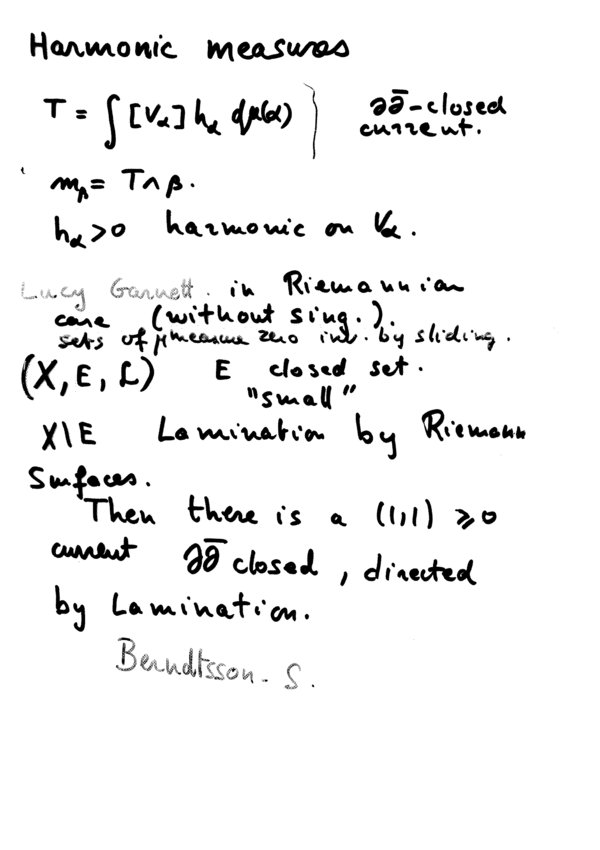 Harmonic measures
T = ∫ [Vα] hα dμ(α) } ∂∂̄-closed current.
mβ = T ∧ β.
hα > 0 harmonic on Vα.
Lucy Garnett. in Riemannian
case (without sing.).
sets of μ measure zero inv. by sliding.
(X, E, L) E closed set.
"small"
X\E Lamination by Riemann
Surfaces.
Then there is a (1,1) ⩾ 0
current ∂∂̄ closed, directed
by Lamination.
Berndtsson - S.